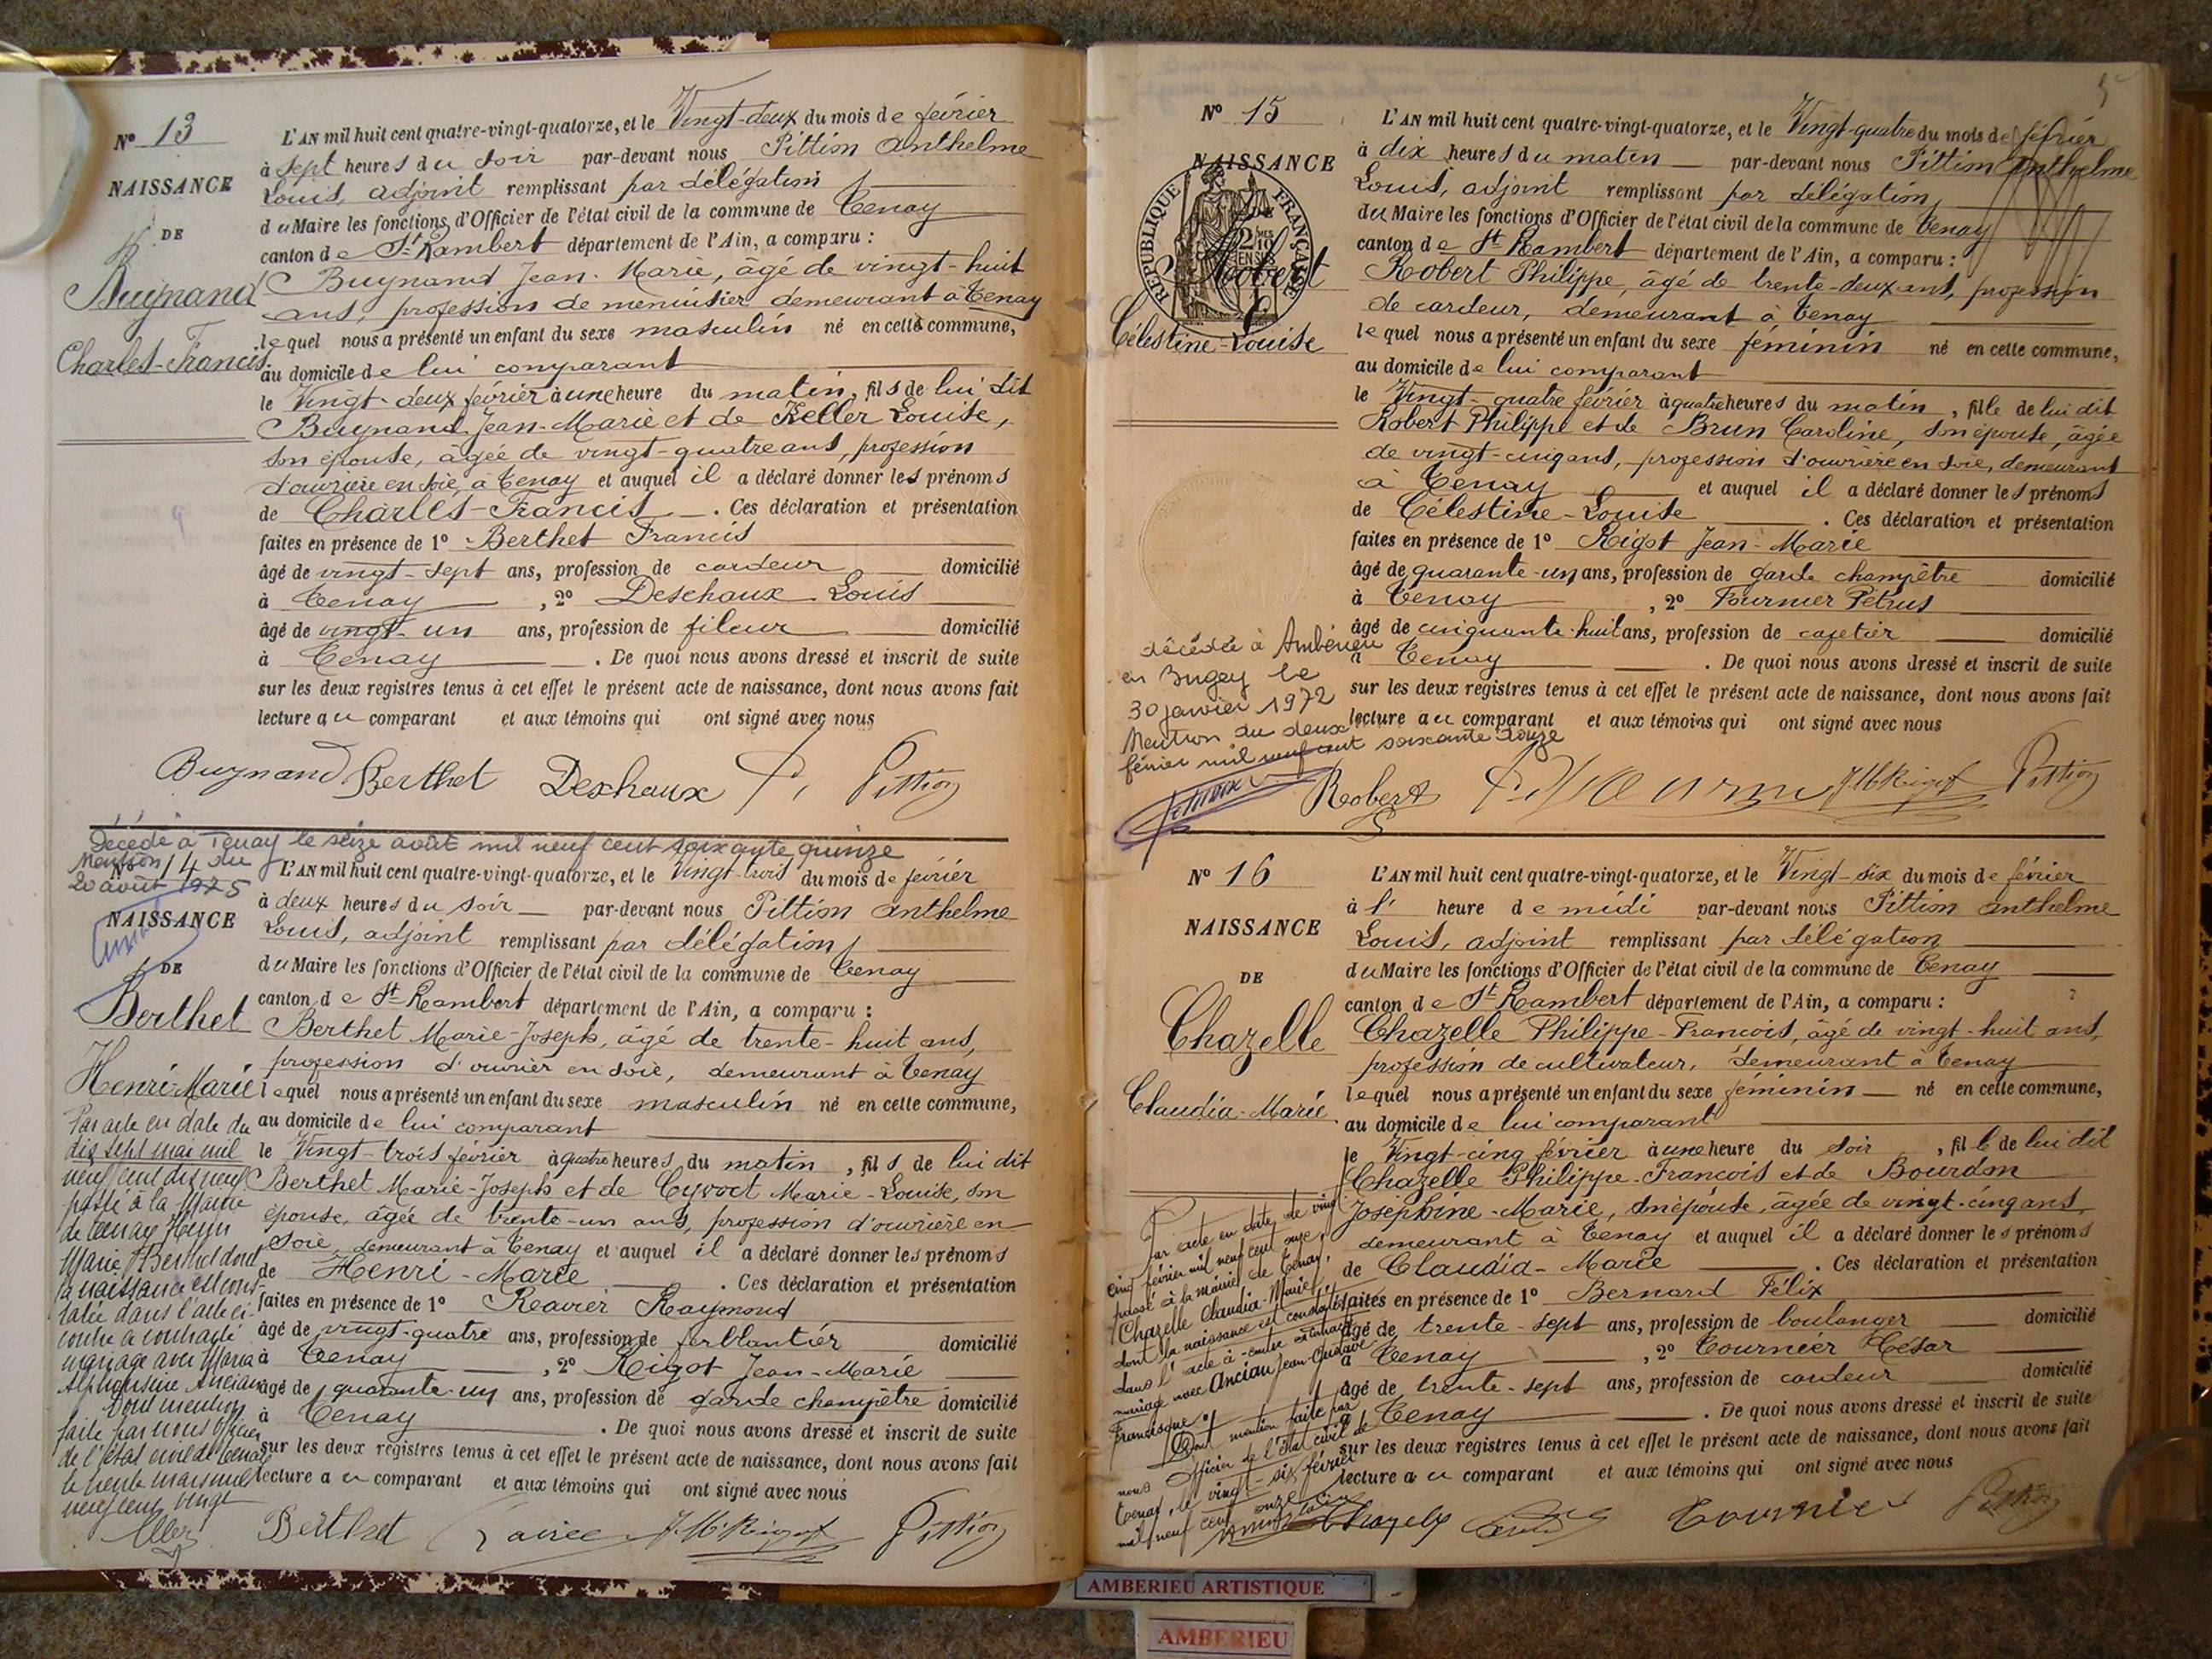 Nº 13
NAISSANCE
DE
Buynand
Charles-Francis
L'AN mil huit cent quatre-vingt-quatorze, et le Vingt-deux du mois de février
à sept heures du soir par-devant nous Pittion Anthelme
Louis, adjoint remplissant par délégation
du Maire les fonctions d'Officier de l'état civil de la commune de Tenay
canton de St Rambert département de l'Ain, a comparu :
Buynand Jean-Marie, âgé de vingt-huit
ans, profession de menuisier demeurant à Tenay
lequel nous a présenté un enfant du sexe masculin né en cette commune,
au domicile de lui comparant
le Vingt-deux février à une heure du matin, fils de lui dit
Buynand Jean-Marie et de Keller Louise,
son épouse, âgée de vingt-quatre ans, profession
d'ouvrière en soie, à Tenay et auquel il a déclaré donner les prénoms
de Charles-Francis. Ces déclaration et présentation
faites en présence de 1º Berthet Francis
âgé de vingt-sept ans, profession de cardeur domicilié
à Tenay, 2º Deschaux Louis
âgé de vingt-un ans, profession de fileur domicilié
à Tenay. De quoi nous avons dressé et inscrit de suite
sur les deux registres tenus à cet effet le présent acte de naissance, dont nous avons fait
lecture au comparant et aux témoins qui ont signé avec nous
Buynand Berthet Deschaux Pittion
Décédé à Tenay le seize août mil neuf cent soixante quinze
Mention du
20 août 1975
Nº 14
NAISSANCE
DE
Berthet
Henri-Marie
Par acte en date du
dix sept mai mil
neuf cent dix neuf
passé à la Mairie
de Tenay Henri
Marie Berthet dont
la naissance est cons-
tatée dans l'acte ci-
contre a contracté
mariage avec Maria
Alphonsine Ancian
Dont mention
faite par nous officier
de l'état civil de Tenay
le trente mars mil
neuf cent vingt
L'AN mil huit cent quatre-vingt-quatorze, et le Vingt-trois du mois de février
à deux heures du soir par-devant nous Pittion Anthelme
Louis, adjoint remplissant par délégation
du Maire les fonctions d'Officier de l'état civil de la commune de Tenay
canton de St Rambert département de l'Ain, a comparu :
Berthet Marie-Joseph, âgé de trente-huit ans,
profession d'ouvrier en soie, demeurant à Tenay
lequel nous a présenté un enfant du sexe masculin né en cette commune,
au domicile de lui comparant
le Vingt-trois février à quatre heures du matin, fils de lui dit
Berthet Marie-Joseph et de Cyvoct Marie-Louise, son
épouse, âgée de trente-un ans, profession d'ouvrière en
soie, demeurant à Tenay et auquel il a déclaré donner les prénoms
de Henri-Marie. Ces déclaration et présentation
faites en présence de 1º Ravier Raymond
âgé de vingt-quatre ans, profession de ferblantier domicilié
à Tenay, 2º Rigot Jean-Marie
âgé de quarante-un ans, profession de garde champêtre domicilié
à Tenay. De quoi nous avons dressé et inscrit de suite
sur les deux registres tenus à cet effet le présent acte de naissance, dont nous avons fait
lecture au comparant et aux témoins qui ont signé avec nous
Berthet J. M. Rigot Pittion
5
Nº 15
NAISSANCE
DE
RÉPUBLIQUE FRANÇAISE
Robert
Célestine-Louise
décédée à Ambérieu
en Bugey le
30 janvier 1972
Mention du deux
février mil neuf cent soixante douze
L'AN mil huit cent quatre-vingt-quatorze, et le Vingt-quatre du mois de février
à dix heures du matin par-devant nous Pittion Anthelme
Louis, adjoint remplissant par délégation
du Maire les fonctions d'Officier de l'état civil de la commune de Tenay
canton de St Rambert département de l'Ain, a comparu :
Robert Philippe, âgé de trente-deux ans, profession
de cardeur, demeurant à Tenay
lequel nous a présenté un enfant du sexe féminin né en cette commune,
au domicile de lui comparant
le Vingt-quatre février à quatre heures du matin, fille de lui dit
Robert Philippe et de Brun Caroline, son épouse, âgée
de vingt-cinq ans, profession d'ouvrière en soie, demeurant
à Tenay et auquel il a déclaré donner les prénoms
de Célestine-Louise. Ces déclaration et présentation
faites en présence de 1º Rigot Jean-Marie
âgé de quarante-un ans, profession de garde champêtre domicilié
à Tenay, 2º Fournier Pétrus
âgé de cinquante-huit ans, profession de cafetier domicilié
à Tenay. De quoi nous avons dressé et inscrit de suite
sur les deux registres tenus à cet effet le présent acte de naissance, dont nous avons fait
lecture au comparant et aux témoins qui ont signé avec nous
Robert J. M. Rigot Pittion
Nº 16
NAISSANCE
DE
Chazelle
Claudia-Marie
Par acte en date de vingt
cinq février mil neuf cent onze,
passé à la mairie de Tenay,
Chazelle Claudia-Marie
dont la naissance est constatée
dans l'acte ci-contre a contracté
mariage avec Ancian Jean-Gustave
Francisque.
Dont mention faite par
nous Officier de l'Etat civil de
Tenay, le vingt-six février
mil neuf cent onze
L'AN mil huit cent quatre-vingt-quatorze, et le Vingt-six du mois de février
à l'heure de midi par-devant nous Pittion Anthelme
Louis, adjoint remplissant par délégation
du Maire les fonctions d'Officier de l'état civil de la commune de Tenay
canton de St Rambert département de l'Ain, a comparu :
Chazelle Philippe-François, âgé de vingt-huit ans,
profession de cultivateur, demeurant à Tenay
lequel nous a présenté un enfant du sexe féminin né en cette commune,
au domicile de lui comparant
le Vingt-cinq février à une heure du soir, fille de lui dit
Chazelle Philippe-François et de Bourdon
Joséphine-Marie, son épouse, âgée de vingt-cinq ans,
demeurant à Tenay et auquel il a déclaré donner les prénoms
de Claudia-Marie. Ces déclaration et présentation
faites en présence de 1º Bernard Félix
âgé de trente-sept ans, profession de boulanger domicilié
à Tenay, 2º Tournier César
âgé de trente-sept ans, profession de cardeur domicilié
à Tenay. De quoi nous avons dressé et inscrit de suite
sur les deux registres tenus à cet effet le présent acte de naissance, dont nous avons fait
lecture au comparant et aux témoins qui ont signé avec nous
Tournier Pittion
AMBERIEU ARTISTIQUE
AMBERIEU